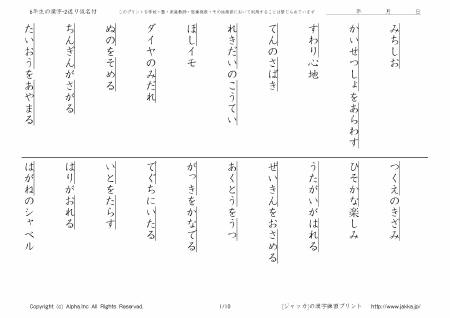 6年生の漢字-2送り仮名付
このプリントを学校・塾・家庭教師・医療施設・その他施設において利用することは禁じられています
年 月 日
みちしお
かいせつしょをあらわす
すわり心地
てんのさばき
れきだいのこうてい
ほしイモ
ダイヤのみだれ
ぬのをそめる
ちんぎんがさがる
たいおうをあやまる
つくえのきざみ
ひそかな楽しみ
うたがいがはれる
せいきんをおさめる
あくとうをうつ
がっきをかなでる
でぐちにいたる
いとをたらす
はりがおれる
はがねのシャベル
Copyright (c) Alpha.Inc All Rights Reserved.
1/10
[ジャッカ]の漢字練習プリント http://www.jakka.jp/